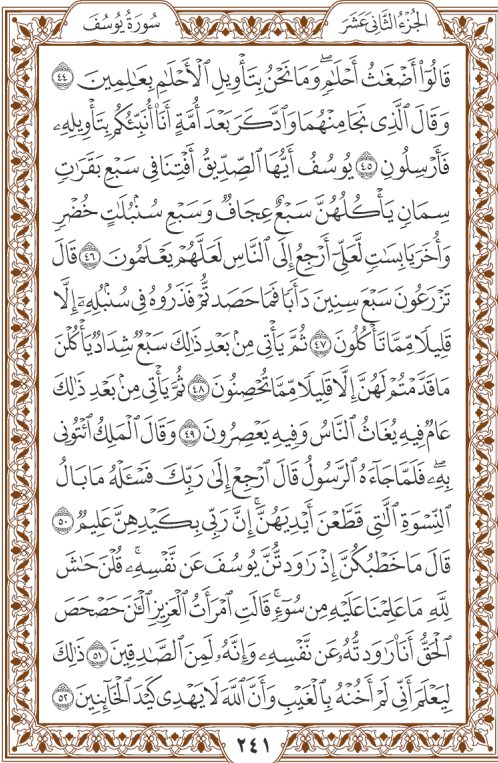 الجزء الثاني عشر
سورة يوسف
قَالُوٓا۟ أَضْغَـٰثُ أَحْلَـٰمٍۖ وَمَا نَحْنُ بِتَأْوِيلِ ٱلْأَحْلَـٰمِ بِعَـٰلِمِينَ ٤٤
وَقَالَ ٱلَّذِى نَجَا مِنْهُمَا وَٱدَّكَرَ بَعْدَ أُمَّةٍ أَنَا۠ أُنَبِّئُكُم بِتَأْوِيلِهِۦ
فَأَرْسِلُونِ ٤٥ يُوسُفُ أَيُّهَا ٱلصِّدِّيقُ أَفْتِنَا فِى سَبْعِ بَقَرَٰتٍ
سِمَانٍ يَأْكُلُهُنَّ سَبْعٌ عِجَافٌ وَسَبْعِ سُنۢبُلَـٰتٍ خُضْرٍ
وَأُخَرَ يَابِسَـٰتٍ لَّعَلِّىٓ أَرْجِعُ إِلَى ٱلنَّاسِ لَعَلَّهُمْ يَعْلَمُونَ ٤٦ قَالَ
تَزْرَعُونَ سَبْعَ سِنِينَ دَأَبًا فَمَا حَصَدتُّمْ فَذَرُوهُ فِى سُنۢبُلِهِۦٓ إِلَّا
قَلِيلًا مِّمَّا تَأْكُلُونَ ٤٧ ثُمَّ يَأْتِى مِنۢ بَعْدِ ذَٰلِكَ سَبْعٌ شِدَادٌ يَأْكُلْنَ
مَا قَدَّمْتُمْ لَهُنَّ إِلَّا قَلِيلًا مِّمَّا تُحْصِنُونَ ٤٨ ثُمَّ يَأْتِى مِنۢ بَعْدِ ذَٰلِكَ
عَامٌ فِيهِ يُغَاثُ ٱلنَّاسُ وَفِيهِ يَعْصِرُونَ ٤٩ وَقَالَ ٱلْمَلِكُ ٱئْتُونِى
بِهِۦۖ فَلَمَّا جَآءَهُ ٱلرَّسُولُ قَالَ ٱرْجِعْ إِلَىٰ رَبِّكَ فَسْـَٔلْهُ مَا بَالُ
ٱلنِّسْوَةِ ٱلَّـٰتِى قَطَّعْنَ أَيْدِيَهُنَّۚ إِنَّ رَبِّى بِكَيْدِهِنَّ عَلِيمٌ ٥٠
قَالَ مَا خَطْبُكُنَّ إِذْ رَٰوَدتُّنَّ يُوسُفَ عَن نَّفْسِهِۦۚ قُلْنَ حَـٰشَ
لِلَّهِ مَا عَلِمْنَا عَلَيْهِ مِن سُوٓءٍۚ قَالَتِ ٱمْرَأَتُ ٱلْعَزِيزِ ٱلْـَٔـٰنَ حَصْحَصَ
ٱلْحَقُّ أَنَا۠ رَٰوَدتُّهُۥ عَن نَّفْسِهِۦ وَإِنَّهُۥ لَمِنَ ٱلصَّـٰدِقِينَ ٥١ ذَٰلِكَ
لِيَعْلَمَ أَنِّى لَمْ أَخُنْهُ بِٱلْغَيْبِ وَأَنَّ ٱللَّهَ لَا يَهْدِى كَيْدَ ٱلْخَآئِنِينَ ٥٢
٢٤١